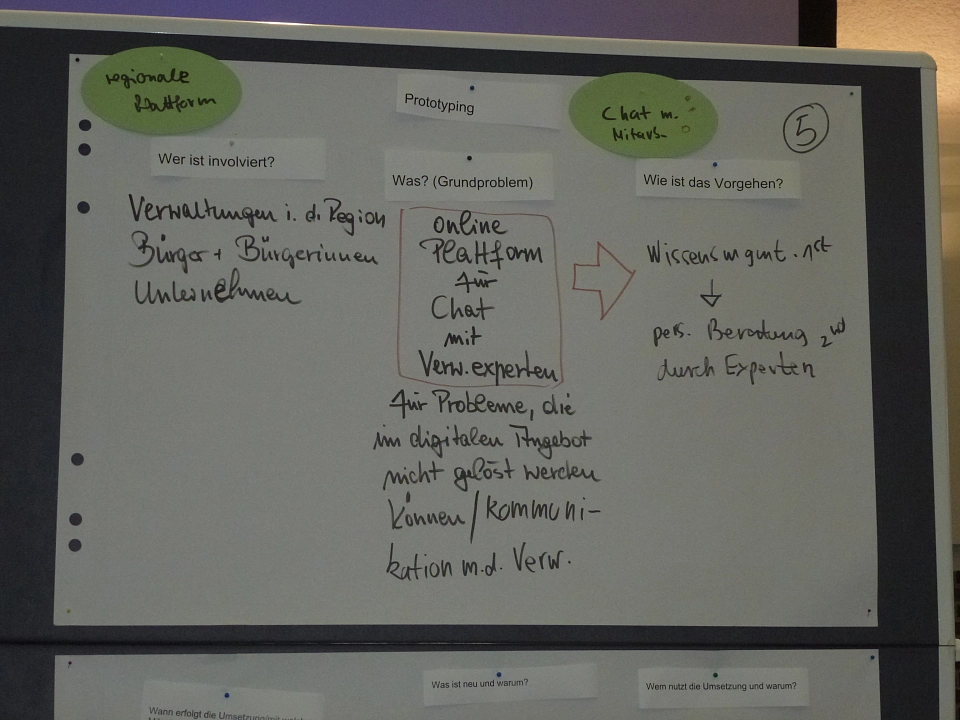 regionale
Plattform
Prototyping
Chat m.
Mitarb.
5
Wer ist involviert?
Verwaltungen i. d. Region
Bürger + Bürgerinnen
Unternehmen
Was? (Grundproblem)
online
Plattform
für
Chat
mit
Verw.experten
für Probleme, die
im digitalen Angebot
nicht gelöst werden
können / kommuni-
kation m.d. Verw.
Wie ist das Vorgehen?
Wissensmgmt. 1st
pers. Beratung 2nd
durch Experten
Wann erfolgt die Umsetzung/mit
Was ist neu und warum?
Wem nutzt die Umsetzung und warum?